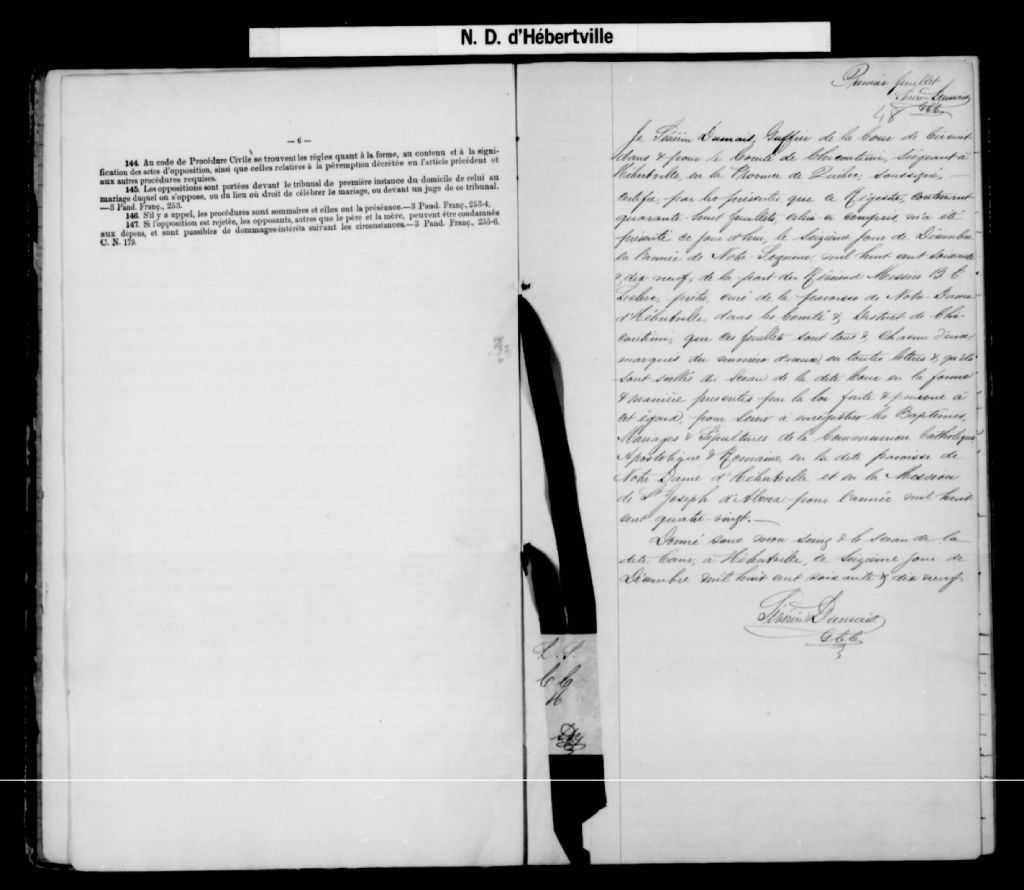 N. D. d'Hébertville
— 6 —
144. Au code de Procédure Civile se trouvent les règles quant à la forme, au contenu et à la signi-
fication des actes d'opposition, ainsi que celles relatives à la péremption décrétée en l'article précédent et
aux autres procédures requises.
145. Les oppositions sont portées devant le tribunal de première instance du domicile de celui au
mariage duquel on s'oppose, ou du lieu où droit de célébrer le mariage, ou devant un juge de ce tribunal.
—3 Pand. Franç., 253.
146. S'il y a appel, les procédures sont sommaires et elles ont la préséance.—3 Pand. Franç., 253-4.
147. Si l'opposition est rejetée, les opposants, autres que le père et la mère, peuvent être condamnés
aux dépens, et sont passibles de dommages-intérêts suivant les circonstances.—3 Pand. Franç., 255-6.
C. N. 179.
Premier feuillet
Séverin Dumais
GCC
48
Je Séverin Dumais, Greffier de la Cour de Circuit
dans & pour le Comté de Chicoutimi, Siégeant à
Hébertville, en la Province de Québec, soussigné,
certifie, par les présentes, que ce Régistre, contenant
quarante huit feuillets, celui ci compris, m'a été
présenté ce jour d'hui, le Seizième jour de Décembre
en l'année de Notre-Seigneur mil huit cent soixante
& dix neuf, de la part du Révérend Messire B. E.
Leclerc, prêtre, curé de la paroisse de Notre Dame
d'Hébertville, dans les Comté & District de Chi-
coutimi; que ces feuillets sont tous & chacun d'eux
marqués du numéro d'iceux en toutes lettres & qu'ils
sont scellés du sceau de la dite Cour en la forme
& manière présentes par la loi faite & pourvue à
cet égard, pour servir à enregistrer les Baptêmes,
Mariages & Sépultures de la Communion Catholique
Apostolique & Romaine en la dite paroisse de
Notre Dame d'Hébertville et en la Mission
de St Joseph d'Alma pour l'année mil huit
cent quatre-vingt.—
Donné sous mon seing & le sceau de la
dite Cour, à Hébertville, ce Seizième jour de
Décembre mil huit cent soixante & dix neuf
Séverin Dumais
GCC
L. S.